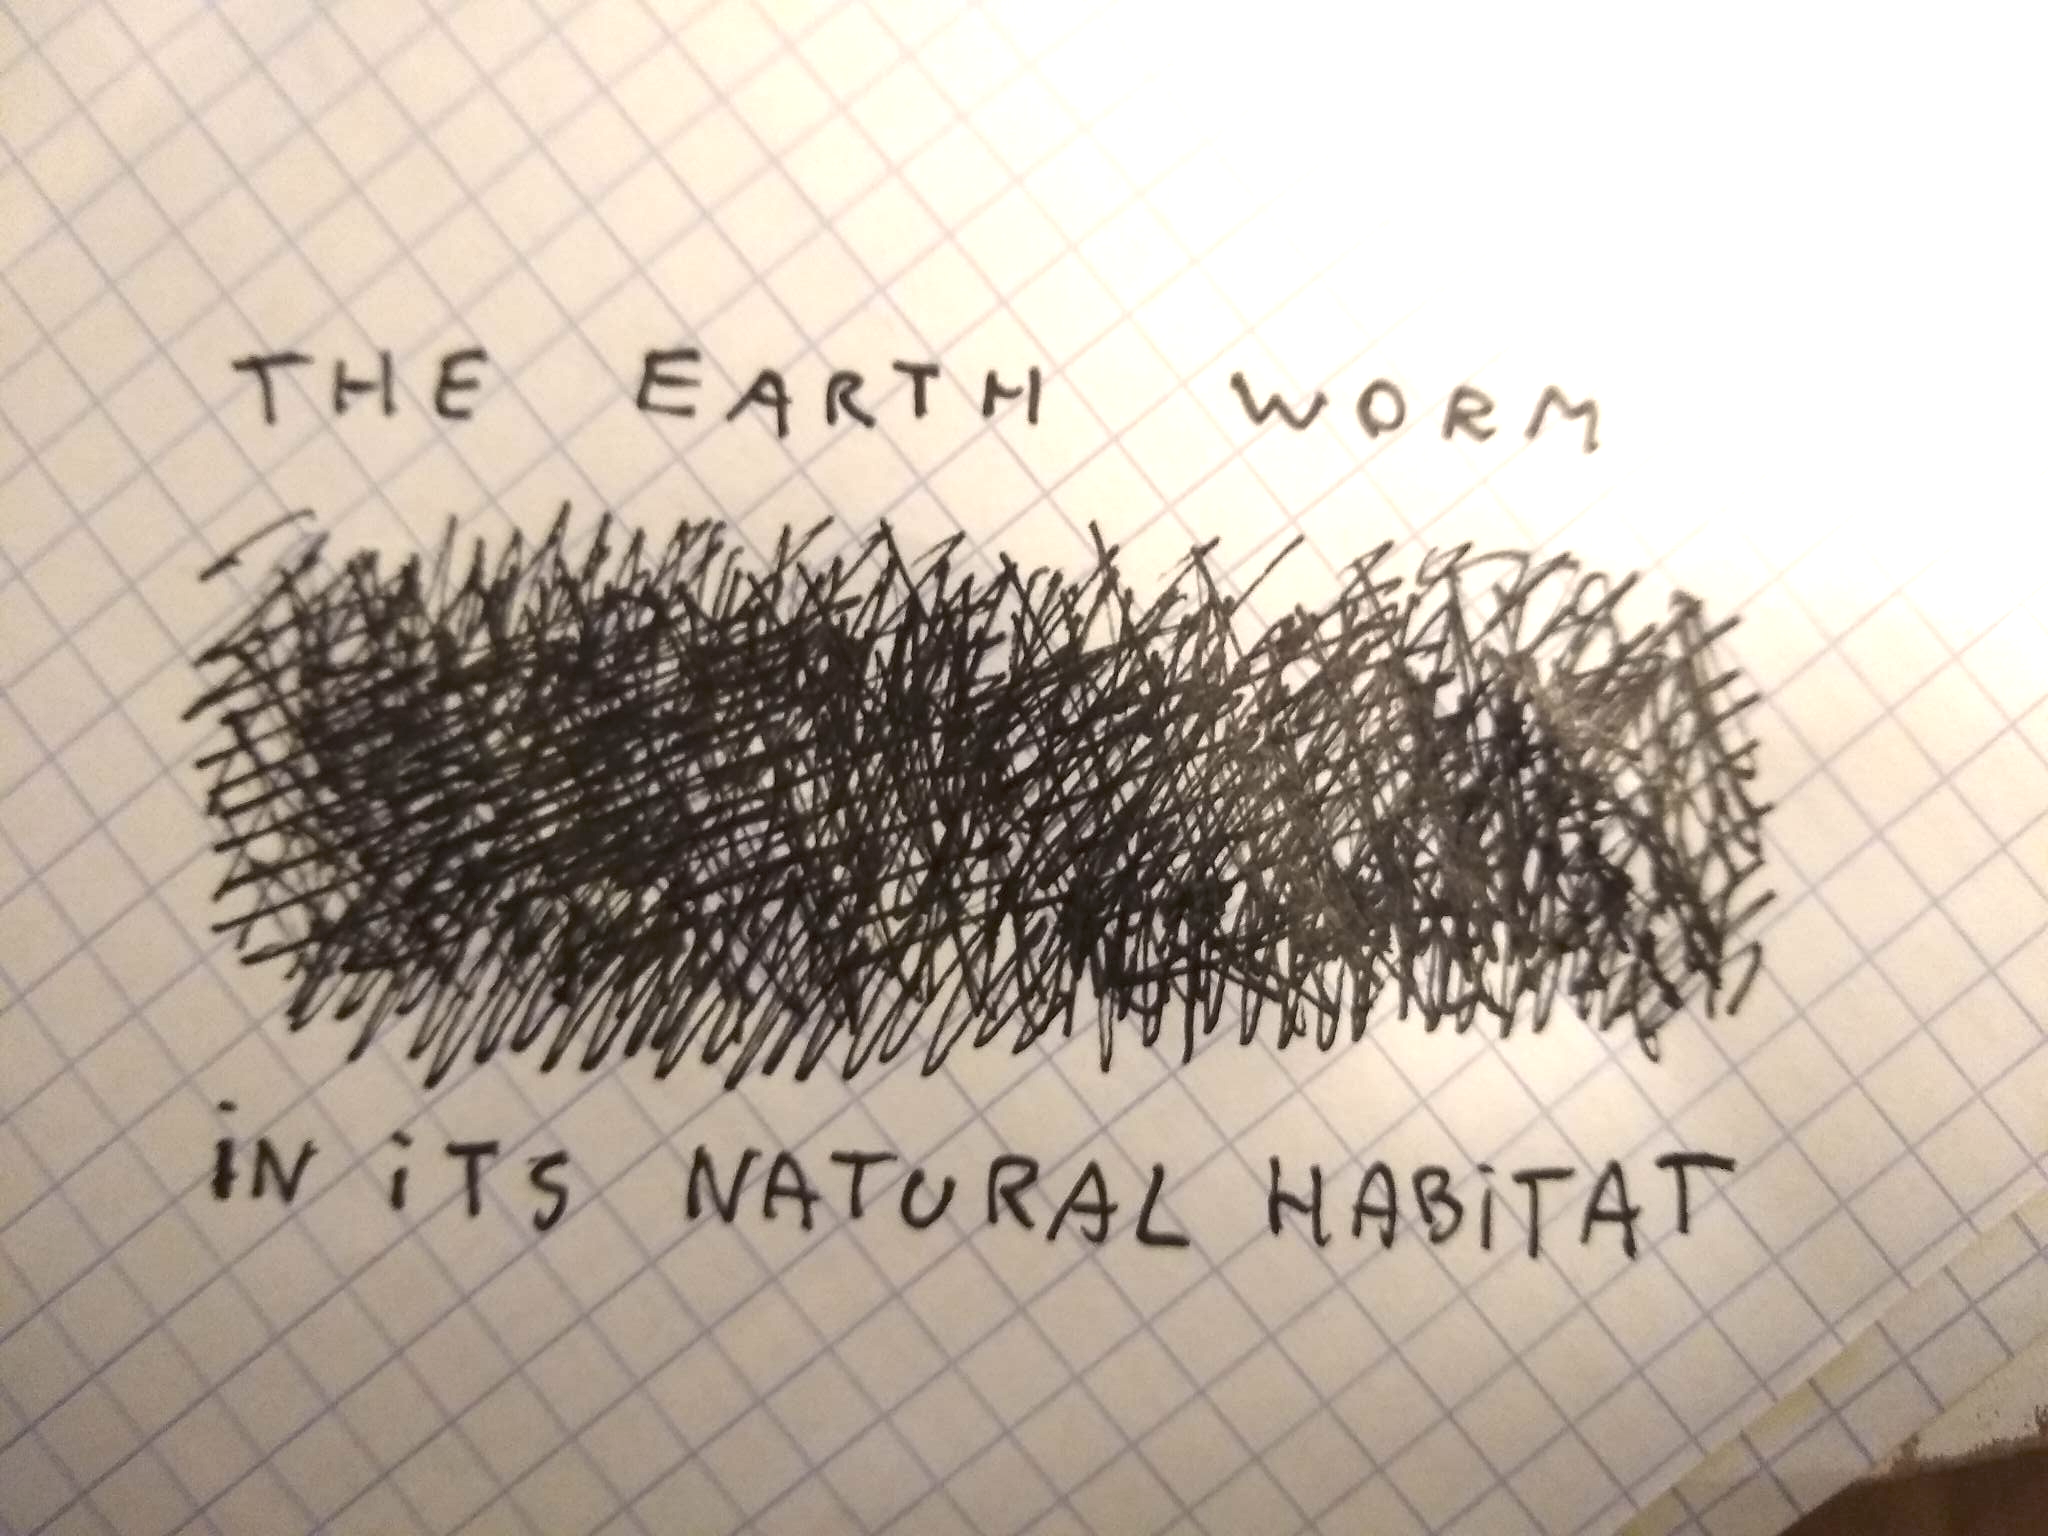 THE EARTH WORM
iN iTS NATURAL HABiTAT